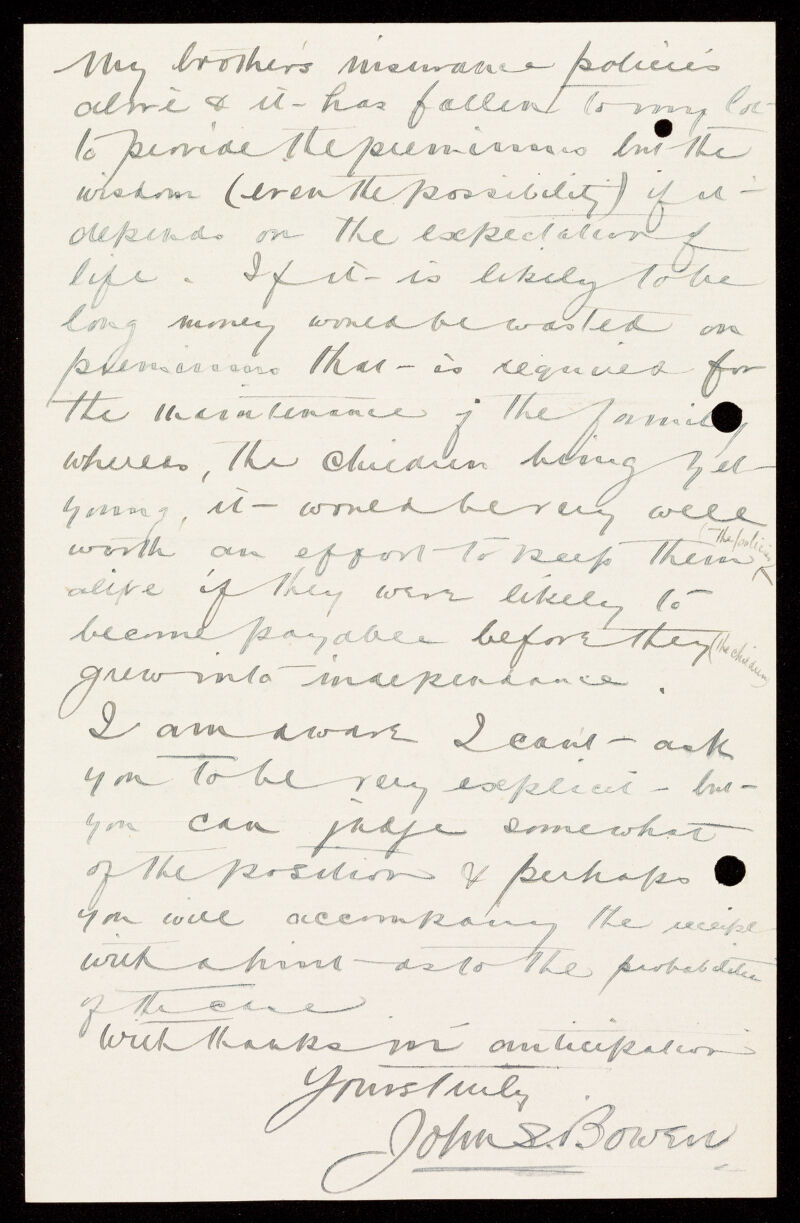 My brother's insurance policies
alive & it has fallen to my lot
to provide the premiums but the
wisdom (even the possibility) if it
depends on the expectation of
life. If it is likely to be
long money would be wasted on
premiums that is required for
the maintenance of the family
whereas, the children being yet
young, it would be very well
worth an effort to keep them (the policies)
alive if they were likely to
become payable before they (the children)
grew into independance.
I am aware I can't ask
you to be very explicit but
you can judge somewhat
of the position & perhaps
you will accompany the receipt
with a hint as to the probabilities
of the case
With thanks in anticipation
Yours truly
John S. Bowen